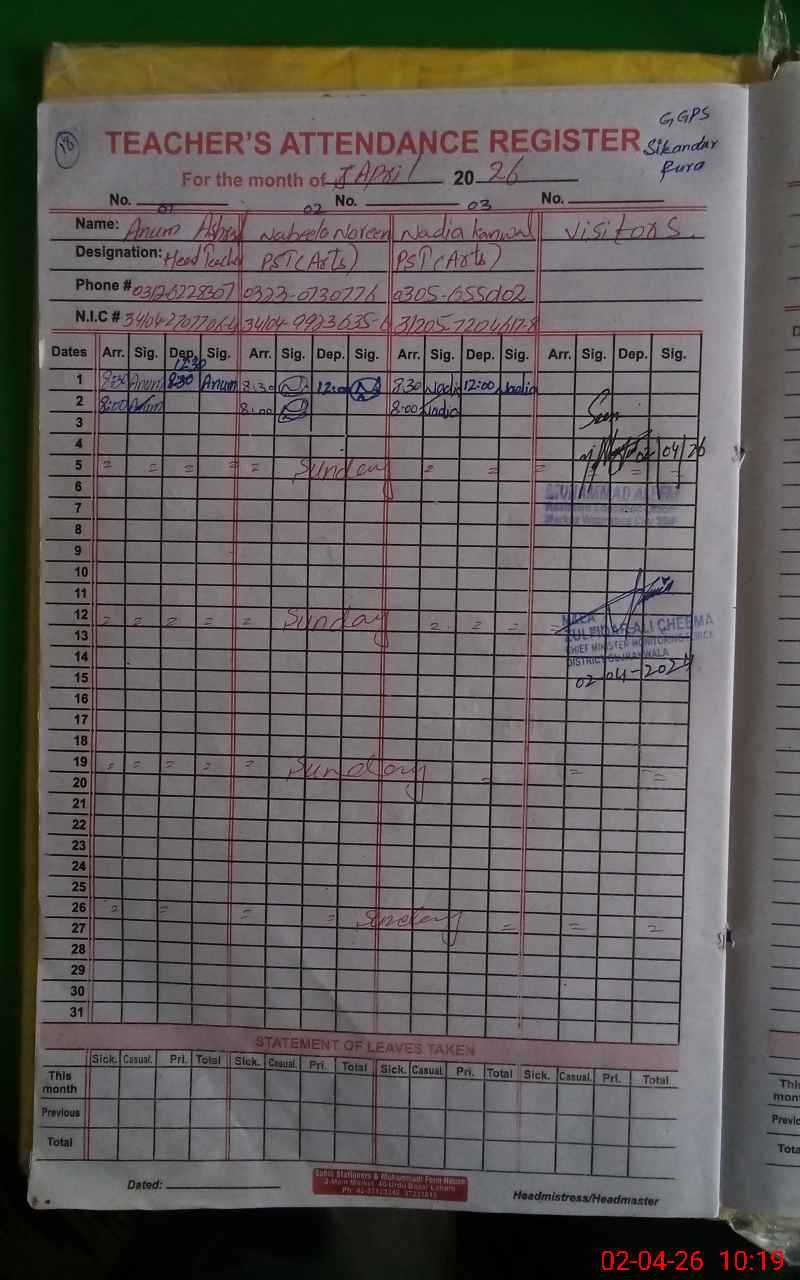 18
GGPS
Sikandar
Pura
TEACHER'S ATTENDANCE REGISTER
For the month of April 2026
No. 01 No. 02 No. 03
Name: Anum Ashraf Nabeela Noreen Nadia Kanwal Visitors
Designation: Head Teacher PST (Arts) PST (Arts)
Phone # 0323-0730776
N.I.C #
Dates Arr. Sig. Dep. Sig. Arr. Sig. Dep. Sig. Arr. Sig. Dep. Sig. Arr. Sig. Dep. Sig.
12:30
1 8:30 Anum 8:30 Anum 8:30 12:00 8:30 Nadia 12:00 Nadia
2 8:00 Anum 8:00 8:00 Nadia
3 Seen
4 02/04/26
5 = = = = = Sunday = = = = = =
6
7
8
9
10
11
12 = = = = = Sunday = = = =
13 ZULFIQAR ALI CHEEMA
14 CHIEF MINISTER MONITORING FORCE
DISTRICT GUJRANWALA
15 02-04-2024
16
17
18
19 = = = = = Sunday = = =
20
21
22
23
24
25
26 = = = = Sunday = = =
27
28
29
30
31
STATEMENT OF LEAVES TAKEN
Sick. Casual. Pri. Total Sick. Casual. Pri. Total Sick. Casual. Pri. Total Sick. Casual. Pri. Total
This month
Previous
Total
Dated:
Headmistress/Headmaster
02-04-26 10:19